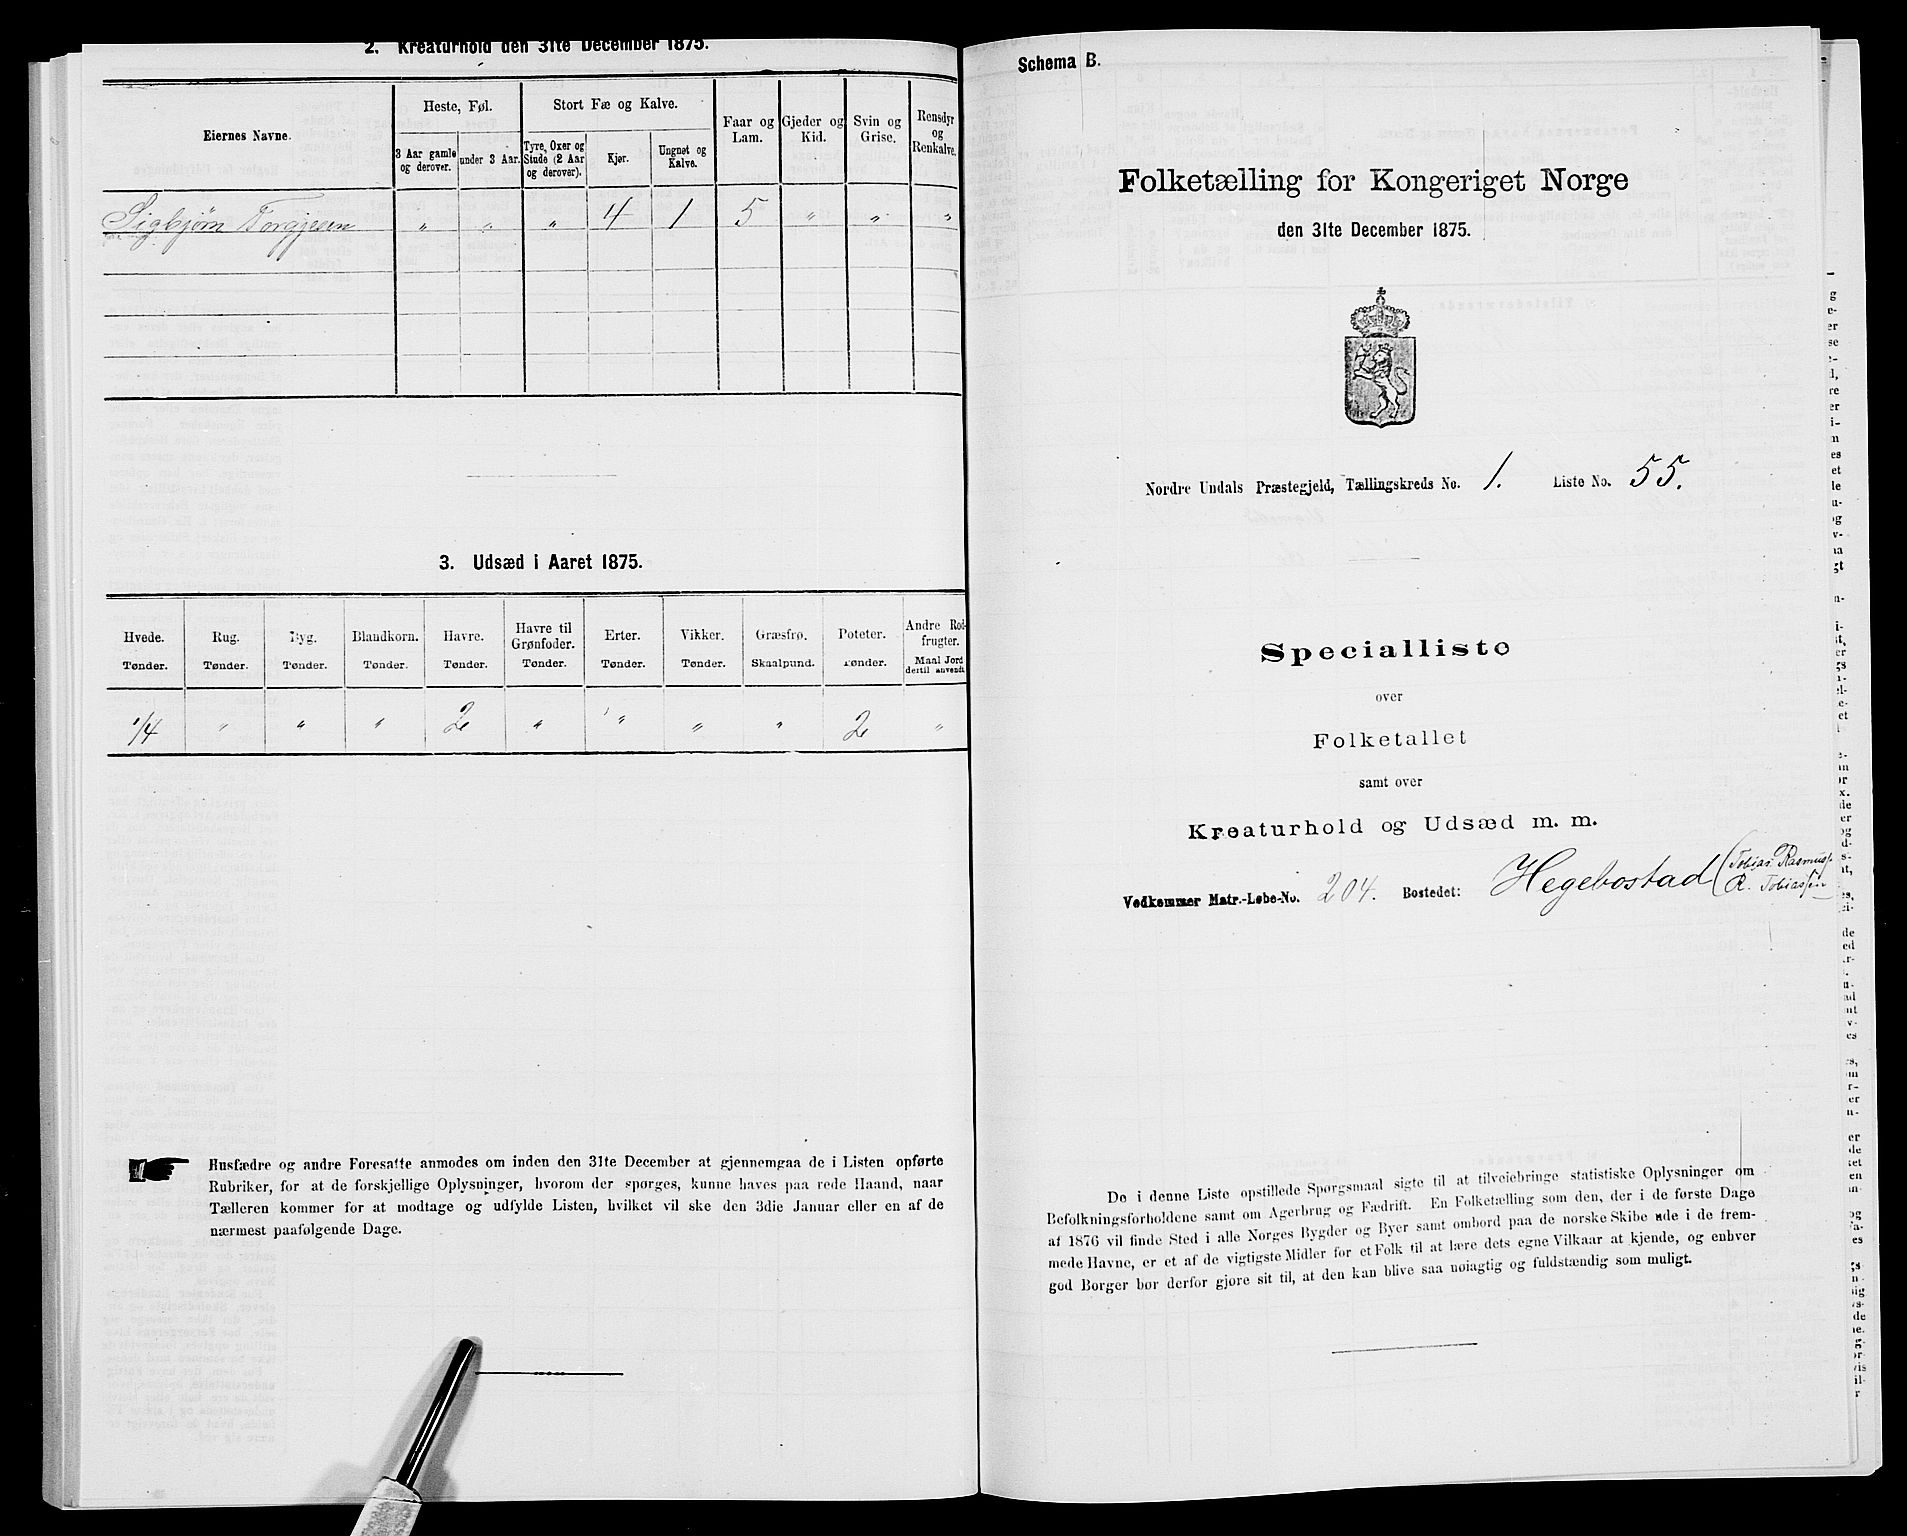 2. Kreaturhold den 31te December 1875.
Eiernes Navne.
Heste, Føl.
Stort Fæ og Kalve.
Faar og Lam.
Gjeder og Kid.
Svin og Grise.
Rensdyr og Renkalve.
3 Aar gamle og derover.
under 3 Aar.
Tyre, Oxer og Stude (2 Aar og derover).
Kjør.
Ungnøt og Kalve.
Sigbjørn Torgjesen " " " 4 1 5 " " "
3. Udsæd i Aaret 1875.
Hvede. Rug. Byg. Blandkorn. Havre. Havre til Grønfoder. Erter. Vikker. Græsfrø. Poteter. Andre Rodfrugter.
Tønder. Tønder. Tønder. Tønder. Tønder. Tønder. Tønder. Tønder. Skaalpund. Tønder. Maal Jord dertil anvendt
1/4 " " " 2 " " " " 2 "
Husfædre og andre Foresatte anmodes om inden den 31te December at gjennemgaa de i Listen opførte
Rubriker, for at de forskjellige Oplysninger, hvorom der spørges, kunne haves paa rede Haand, naar
Tælleren kommer for at modtage og udfylde Listen, hvilket vil ske den 3die Januar eller en af de
nærmest paafølgende Dage.
Schema B.
Folketælling for Kongeriget Norge
den 31te December 1875.
Nordre Undals Præstegjeld, Tællingskreds No. 1. Liste No. 55.
Specialliste
over
Folketallet
samt over
Kreaturhold og Udsæd m. m.
Vedkommer Matr.-Løbe-No. 204. Bostedet: Hegebostad (Tobias Rasmuss.
R. Tobiassen
De i denne Liste opstillede Spørgsmaal sigte til at tilveiebringe statistiske Oplysninger om
Befolkningsforholdene samt om Agerbrug og Fædrift. En Folketælling som den, der i de første Dage
af 1876 vil finde Sted i alle Norges Bygder og Byer samt ombord paa de norske Skibe ude i de frem-
mede Havne, er et af de vigtigste Midler for et Folk til at lære dets egne Vilkaar at kjende, og enhver
god Borger bør derfor gjøre sit til, at den kan blive saa nøiagtig og fuldstændig som muligt.